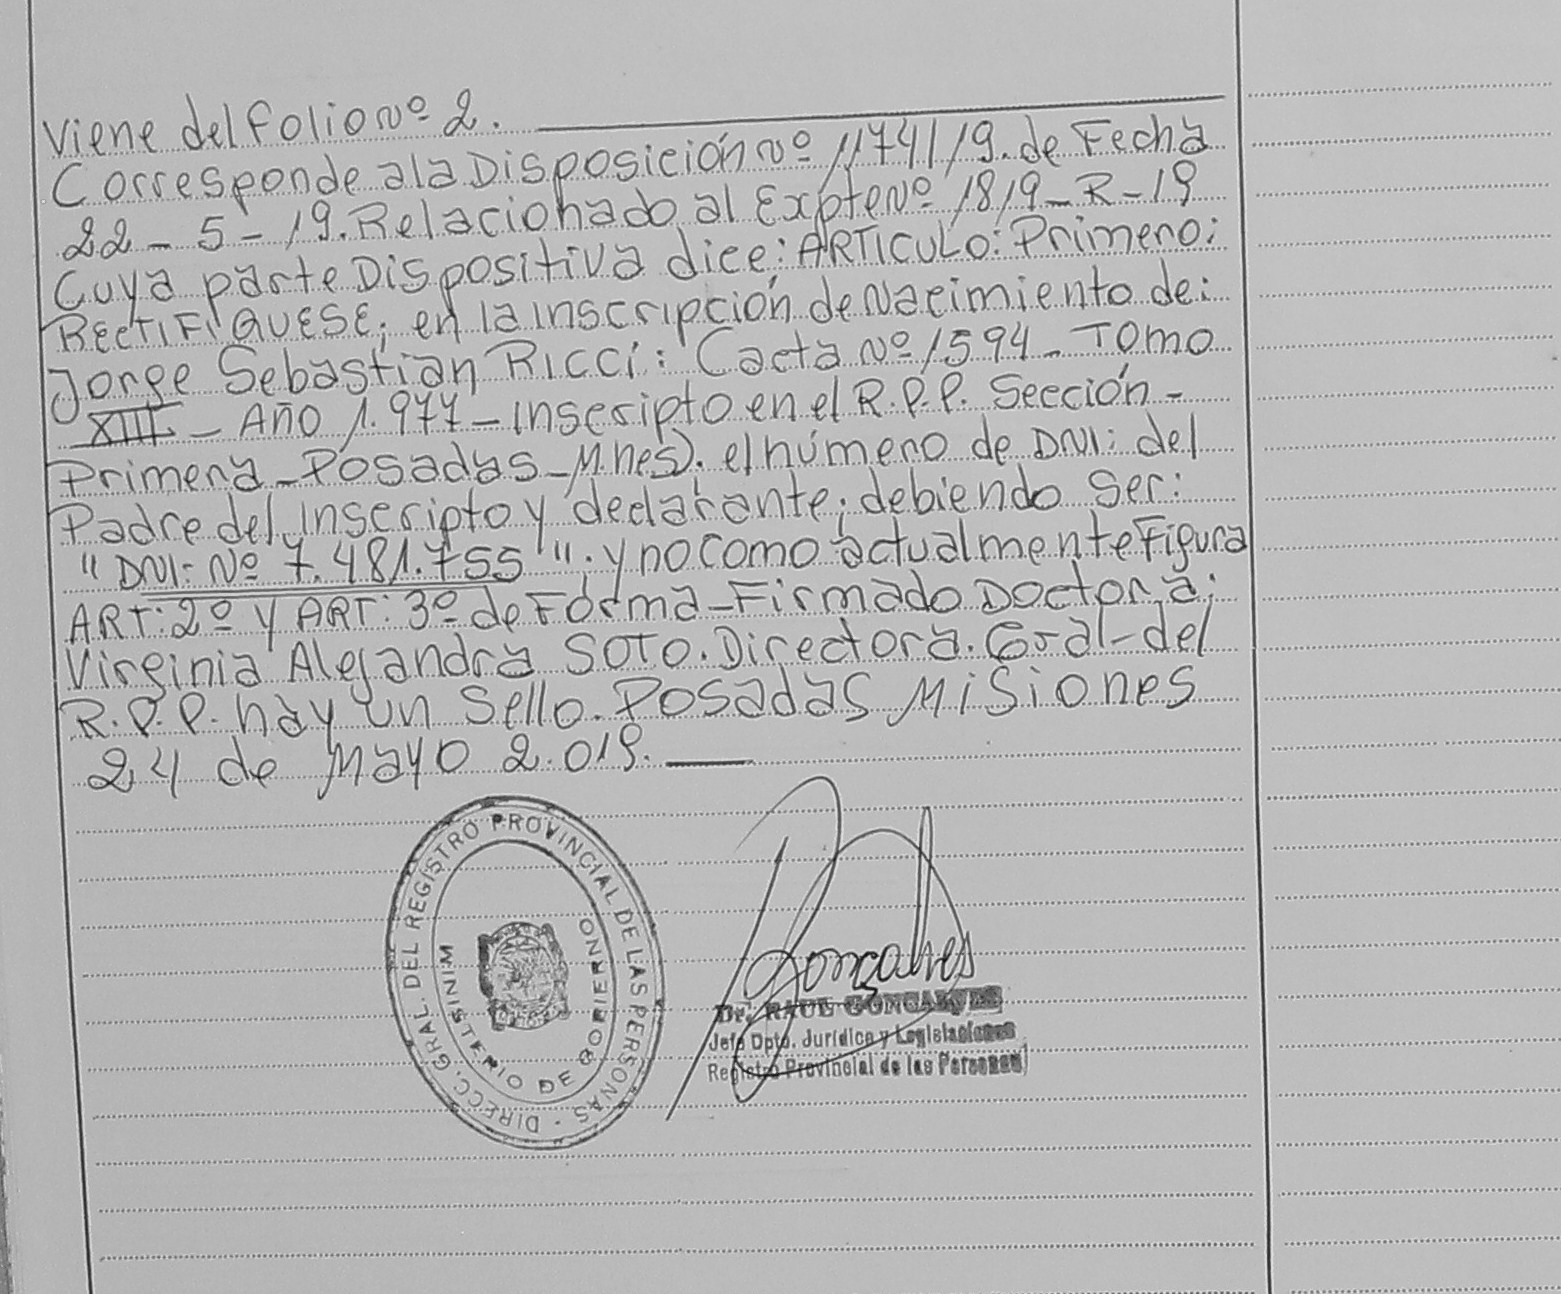 Viene del folio Nº 2.
Corresponde a la Disposición Nº 1174/19. de Fecha
22-5-19. Relacionado al Expte Nº 1819-R-19
Cuya parte Dispositiva dice: ARTICULO: Primero:
RECTIFIQUESE; en la inscripción de Nacimiento de:
Jorge Sebastian RICCI: (acta Nº 1594- Tomo
XIII - AÑO 1.977- Inscripto en el R.P.P. Sección-
Primera - Posadas - Mnes). el número de DNI: del
Padre del Inscripto y declarante; debiendo ser:
"DNI: Nº 7.481.755"; y no como actualmente Figura
ART: 2º Y ART: 3º de Forma - Firmado Doctora:
Virginia Alejandra SOTO. Directora. Gral- del
R.P.P. hay un Sello. Posadas Misiones
24 de Mayo 2.019.
DIRECC. GRAL. DEL REGISTRO PROVINCIAL DE LAS PERSONAS -
MINISTERIO DE GOBIERNO
Gonçalves
Dr. RAUL GONCALVES
Jefe Dpto. Jurídico y Legislaciones
Registro Provincial de las Personas